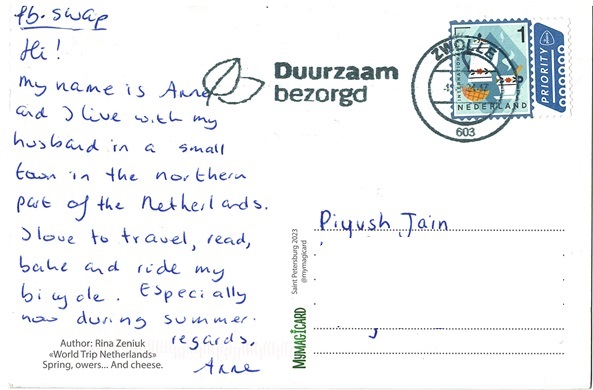 fb. swap
Hi!
my name is Anne
and I live with my
husband in a small
town in the northern
part of the Netherlands.
I love to travel, read,
bake and ride my
bicycle. Especially
now during summer.
regards,
Anne
Author: Rina Zeniuk
«World Trip Netherlands»
Spring, owers... And cheese.
Duurzaam
bezorgd
ZWOLLE
603
1
INTERNATIONAL
NEDERLAND
PRIORITY
Saint Petersburg 2023
@mymagicard
MYMAGICARD
Piyush Jain